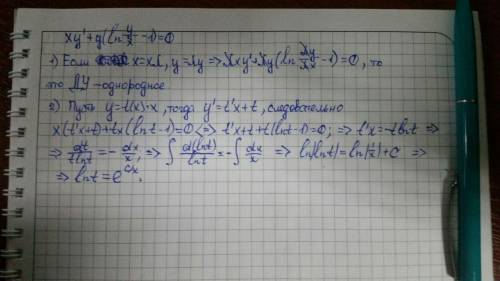 xy'+y(ln y/x -1)=0
1) Если x=xλ, y=λy => λxy'+λy(ln λy/λx -1)=0, то
это ДУ - однородное.
2) Пусть y=t(x)·x, тогда y'=t'x+t, следовательно
x(t'x+t)+tx(ln t-1)=0 <=> t'x+t+t(ln t-1)=0; => t'x=-t ln t =>
=> dt/(t ln t) = - dx/x; => ∫ d(ln t)/ln t = -∫ dx/x => ln|ln t|=ln|1/x|+C =>
=> ln t = e^(C/x).